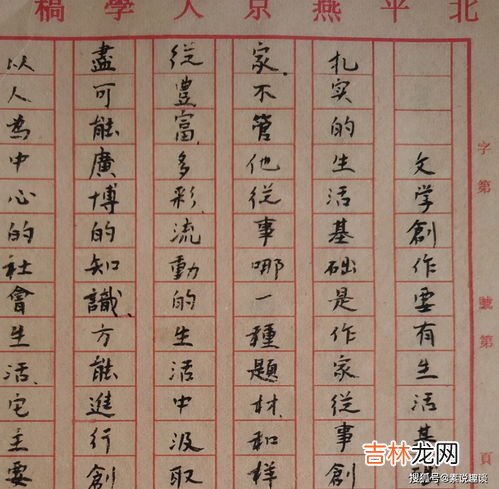 北平燕京大學稿
字第 號第 頁
文学創作要有生活基
扎实的生活基础是作家從事創
家.不管他從事哪一種題材和样
從豊富多彩.流動的生活中汲取
盡可能廣博的知識.方能進行創
以人為中心的社會生活.它主要
吉林龙网
搜狐号@素说趣谈